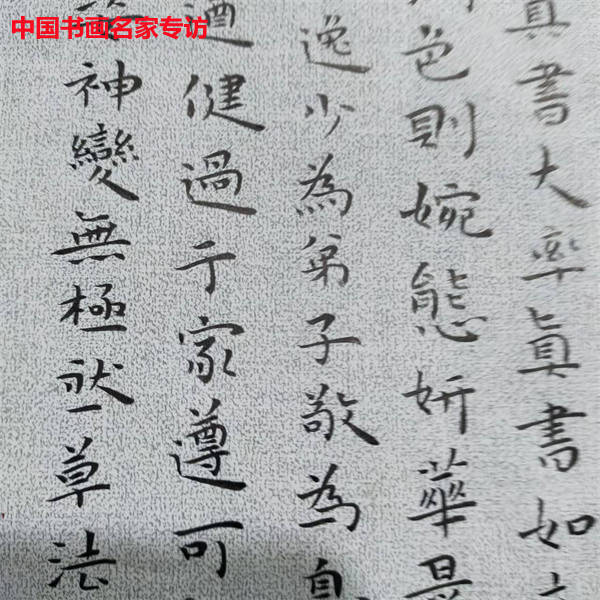 中国书画名家专访
真書大率真書如
色則婉態妍華最
逸少為弟子敬為息
遒健過于家尊可
神變無極然草法